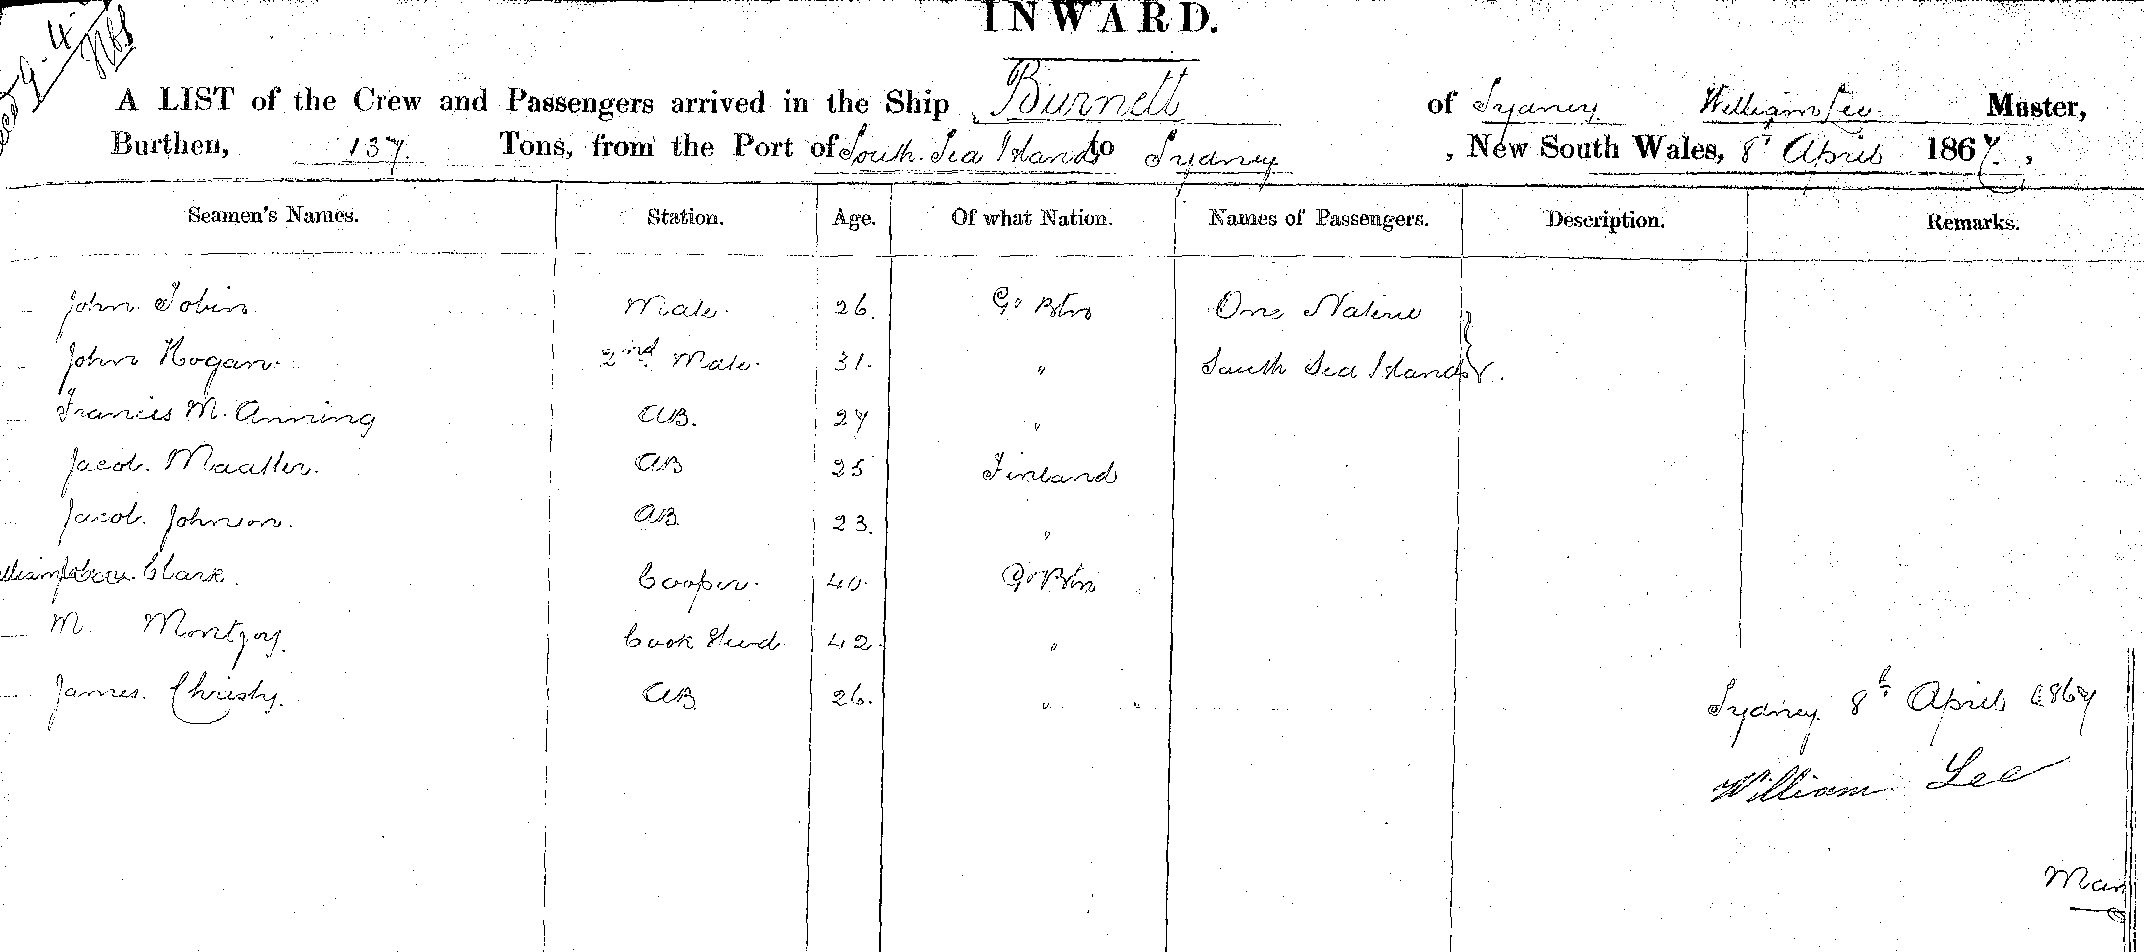 INWARD.
A LIST of the Crew and Passengers arrived in the Ship Burnett of Sydney William Lee Master,
Burthen, 137 Tons, from the Port of South Sea Islands to Sydney, New South Wales, 8th April 1867,
Seamen's Names. Station. Age. Of what Nation. Names of Passengers. Description. Remarks.
John Tobin Mate 26. Gt Btn One Native
John Hogan 2nd Mate 31. " South Sea Islander.
Francis M. Anning AB. 27 "
Jacob AB 25 Finland
Jacob Johnson. AB 23. "
Clark. Cooper. 40 Gt Btn
M Cook Stewd 42. "
James Christy. AB 26. " "
Sydney 8th April 1867
William Lee